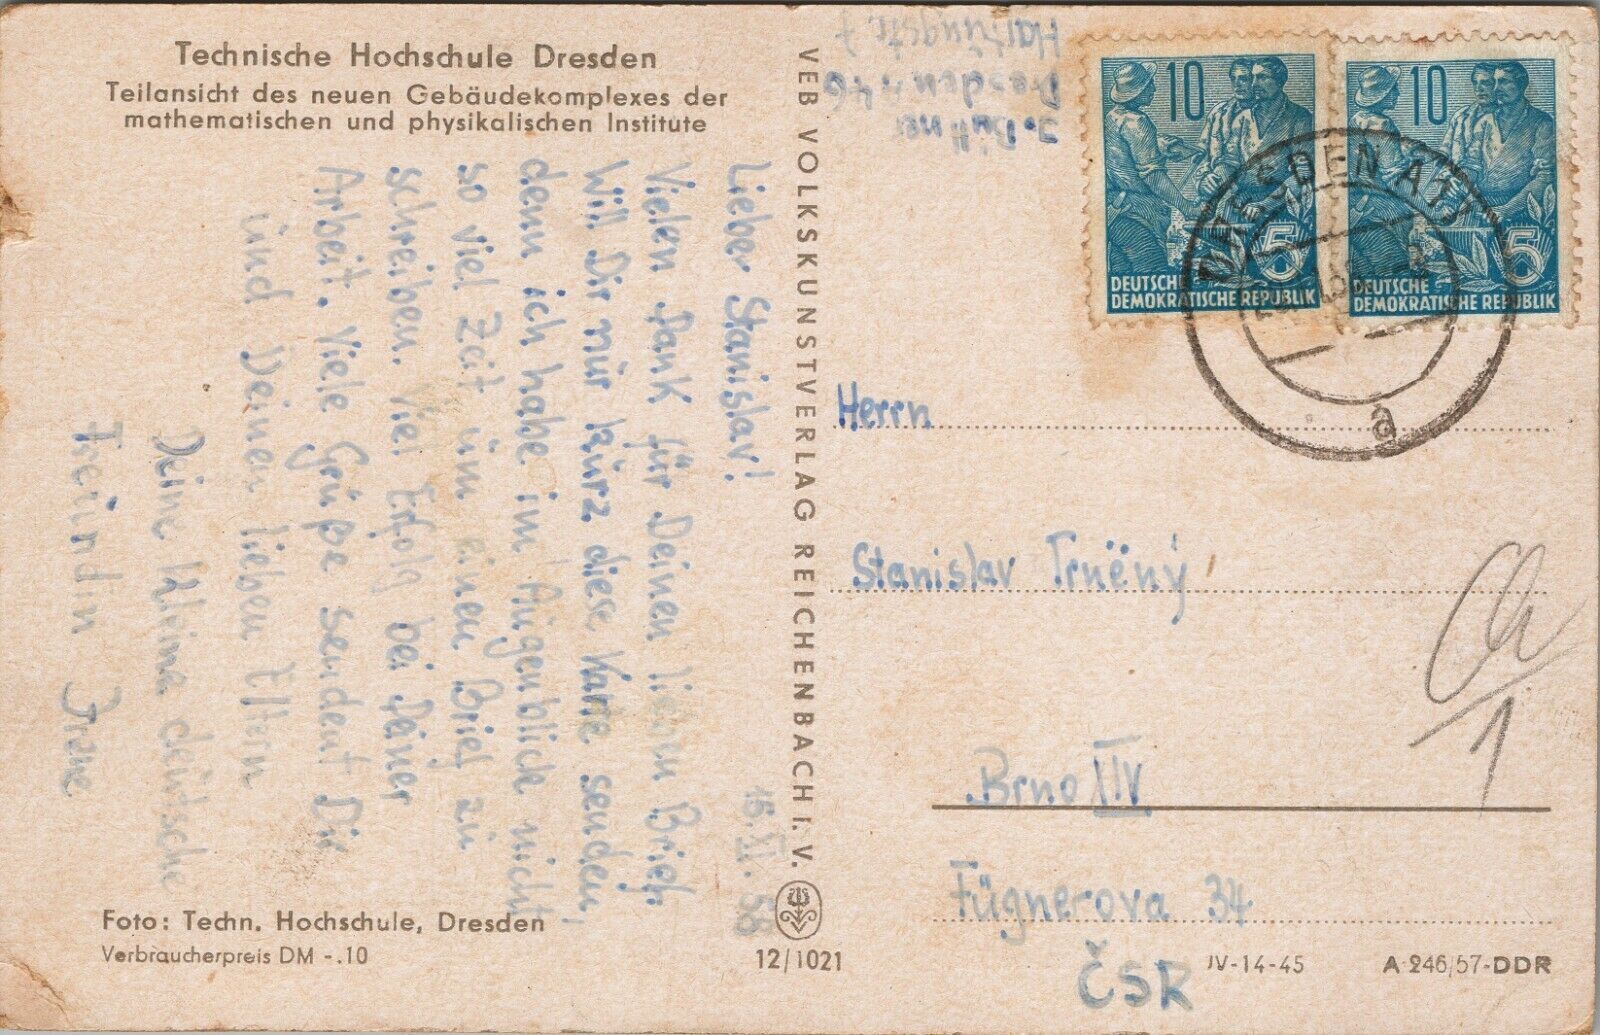 Technische Hochschule Dresden
Teilansicht des neuen Gebäudekomplexes der
mathematischen und physikalischen Institute
15.XI.58
Lieber Stanislav!
Vielen Dank für Deinen lieben Brief.
Will Dir nur kurz diese Karte senden,
denn ich habe im Augenblick nicht
so viel Zeit um einen Brief zu
schreiben. Viel Erfolg bei Deiner
Arbeit. Viele Grüße sendet Dir
und Deinen lieben Eltern
Deine kleine deutsche
Freundin Irene
Foto: Techn. Hochschule, Dresden
Verbraucherpreis DM -.10
VEB VOLKSKUNSTVERLAG REICHENBACH I. V.
12/1021
Dresden A 46
10
5
DEUTSCHE
DEMOKRATISCHE REPUBLIK
10
5
DEUTSCHE
DEMOKRATISCHE REPUBLIK
DRESDEN
a
Herrn
Stanislav Trněný
Brno XIV
Fügnerova 34
ČSR
IV-14-45
A 246/57-DDR
1